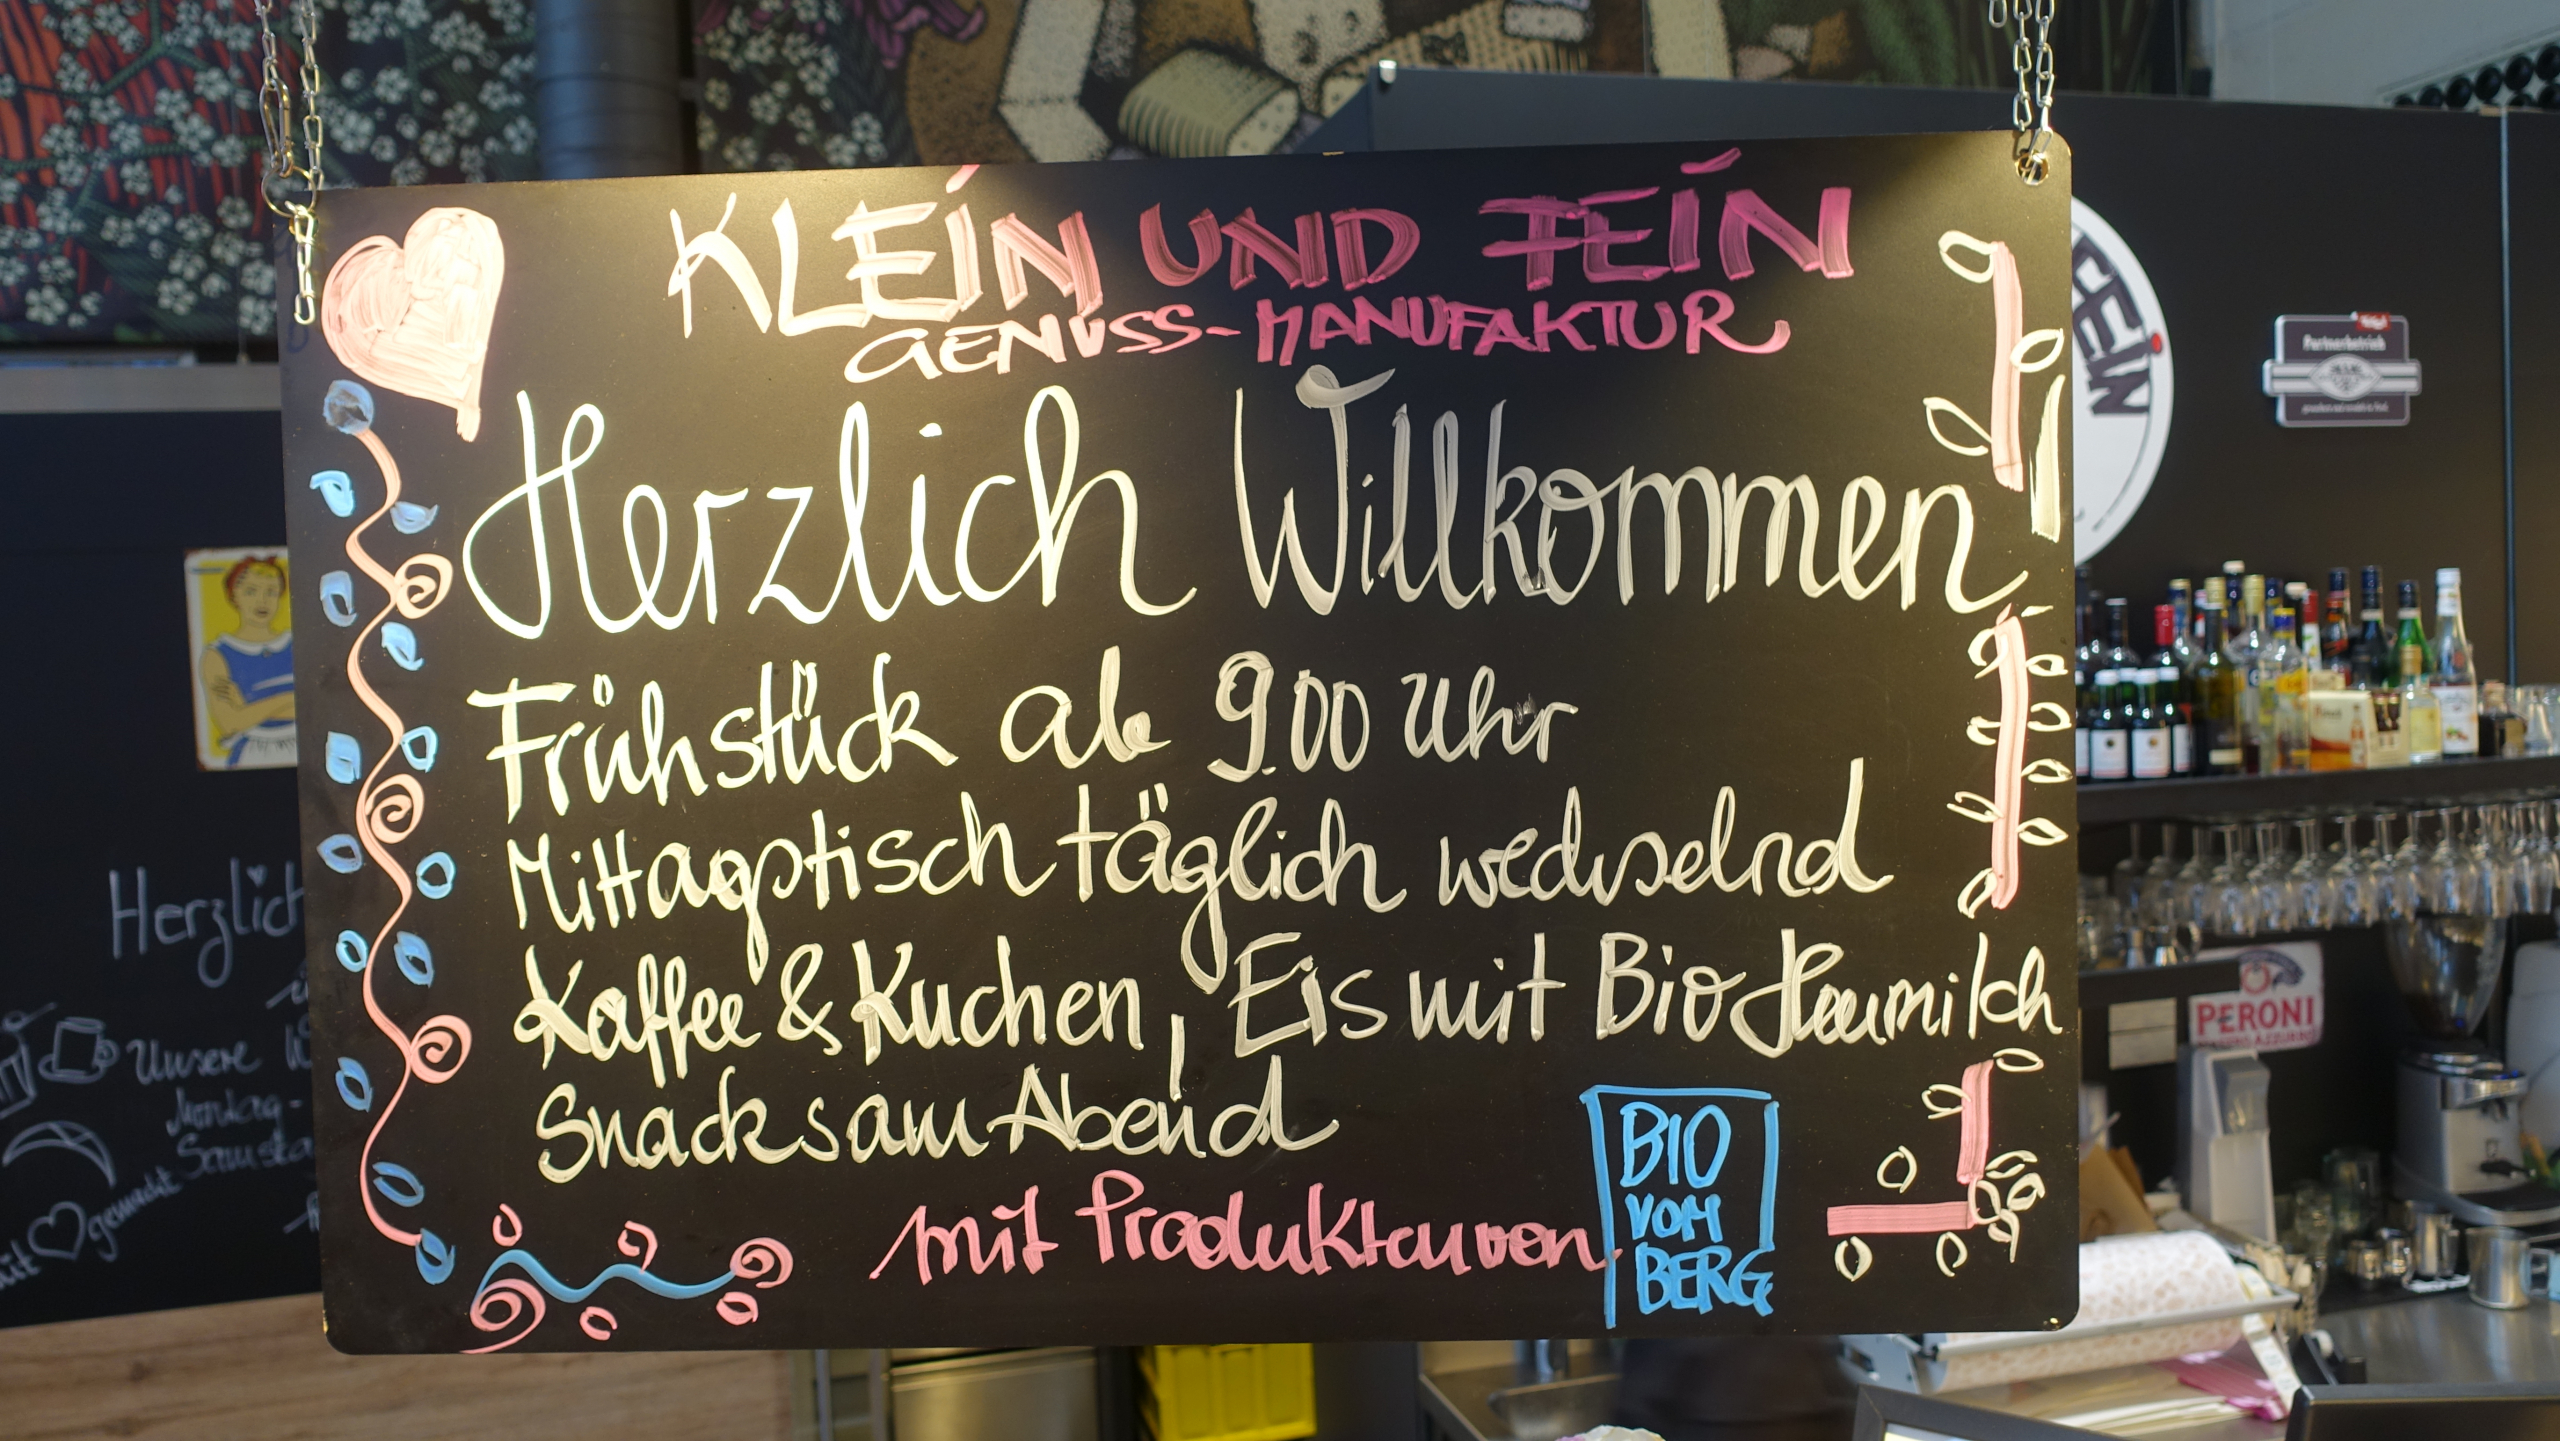 KLEIN UND FEIN
GENUSS-MANUFAKTUR
Herzlich Willkommen
Frühstück ab 9.00 Uhr
Mittagstisch täglich wechselnd
Kaffee & Kuchen, Eis mit Bio Heumilch
Snacks am Abend
mit Produkten von
BIO
VOM
BERG
FEIN
Partnerbetrieb
PERONI
Herzlich
Unsere
Montag-
Samsta
mit gemacht